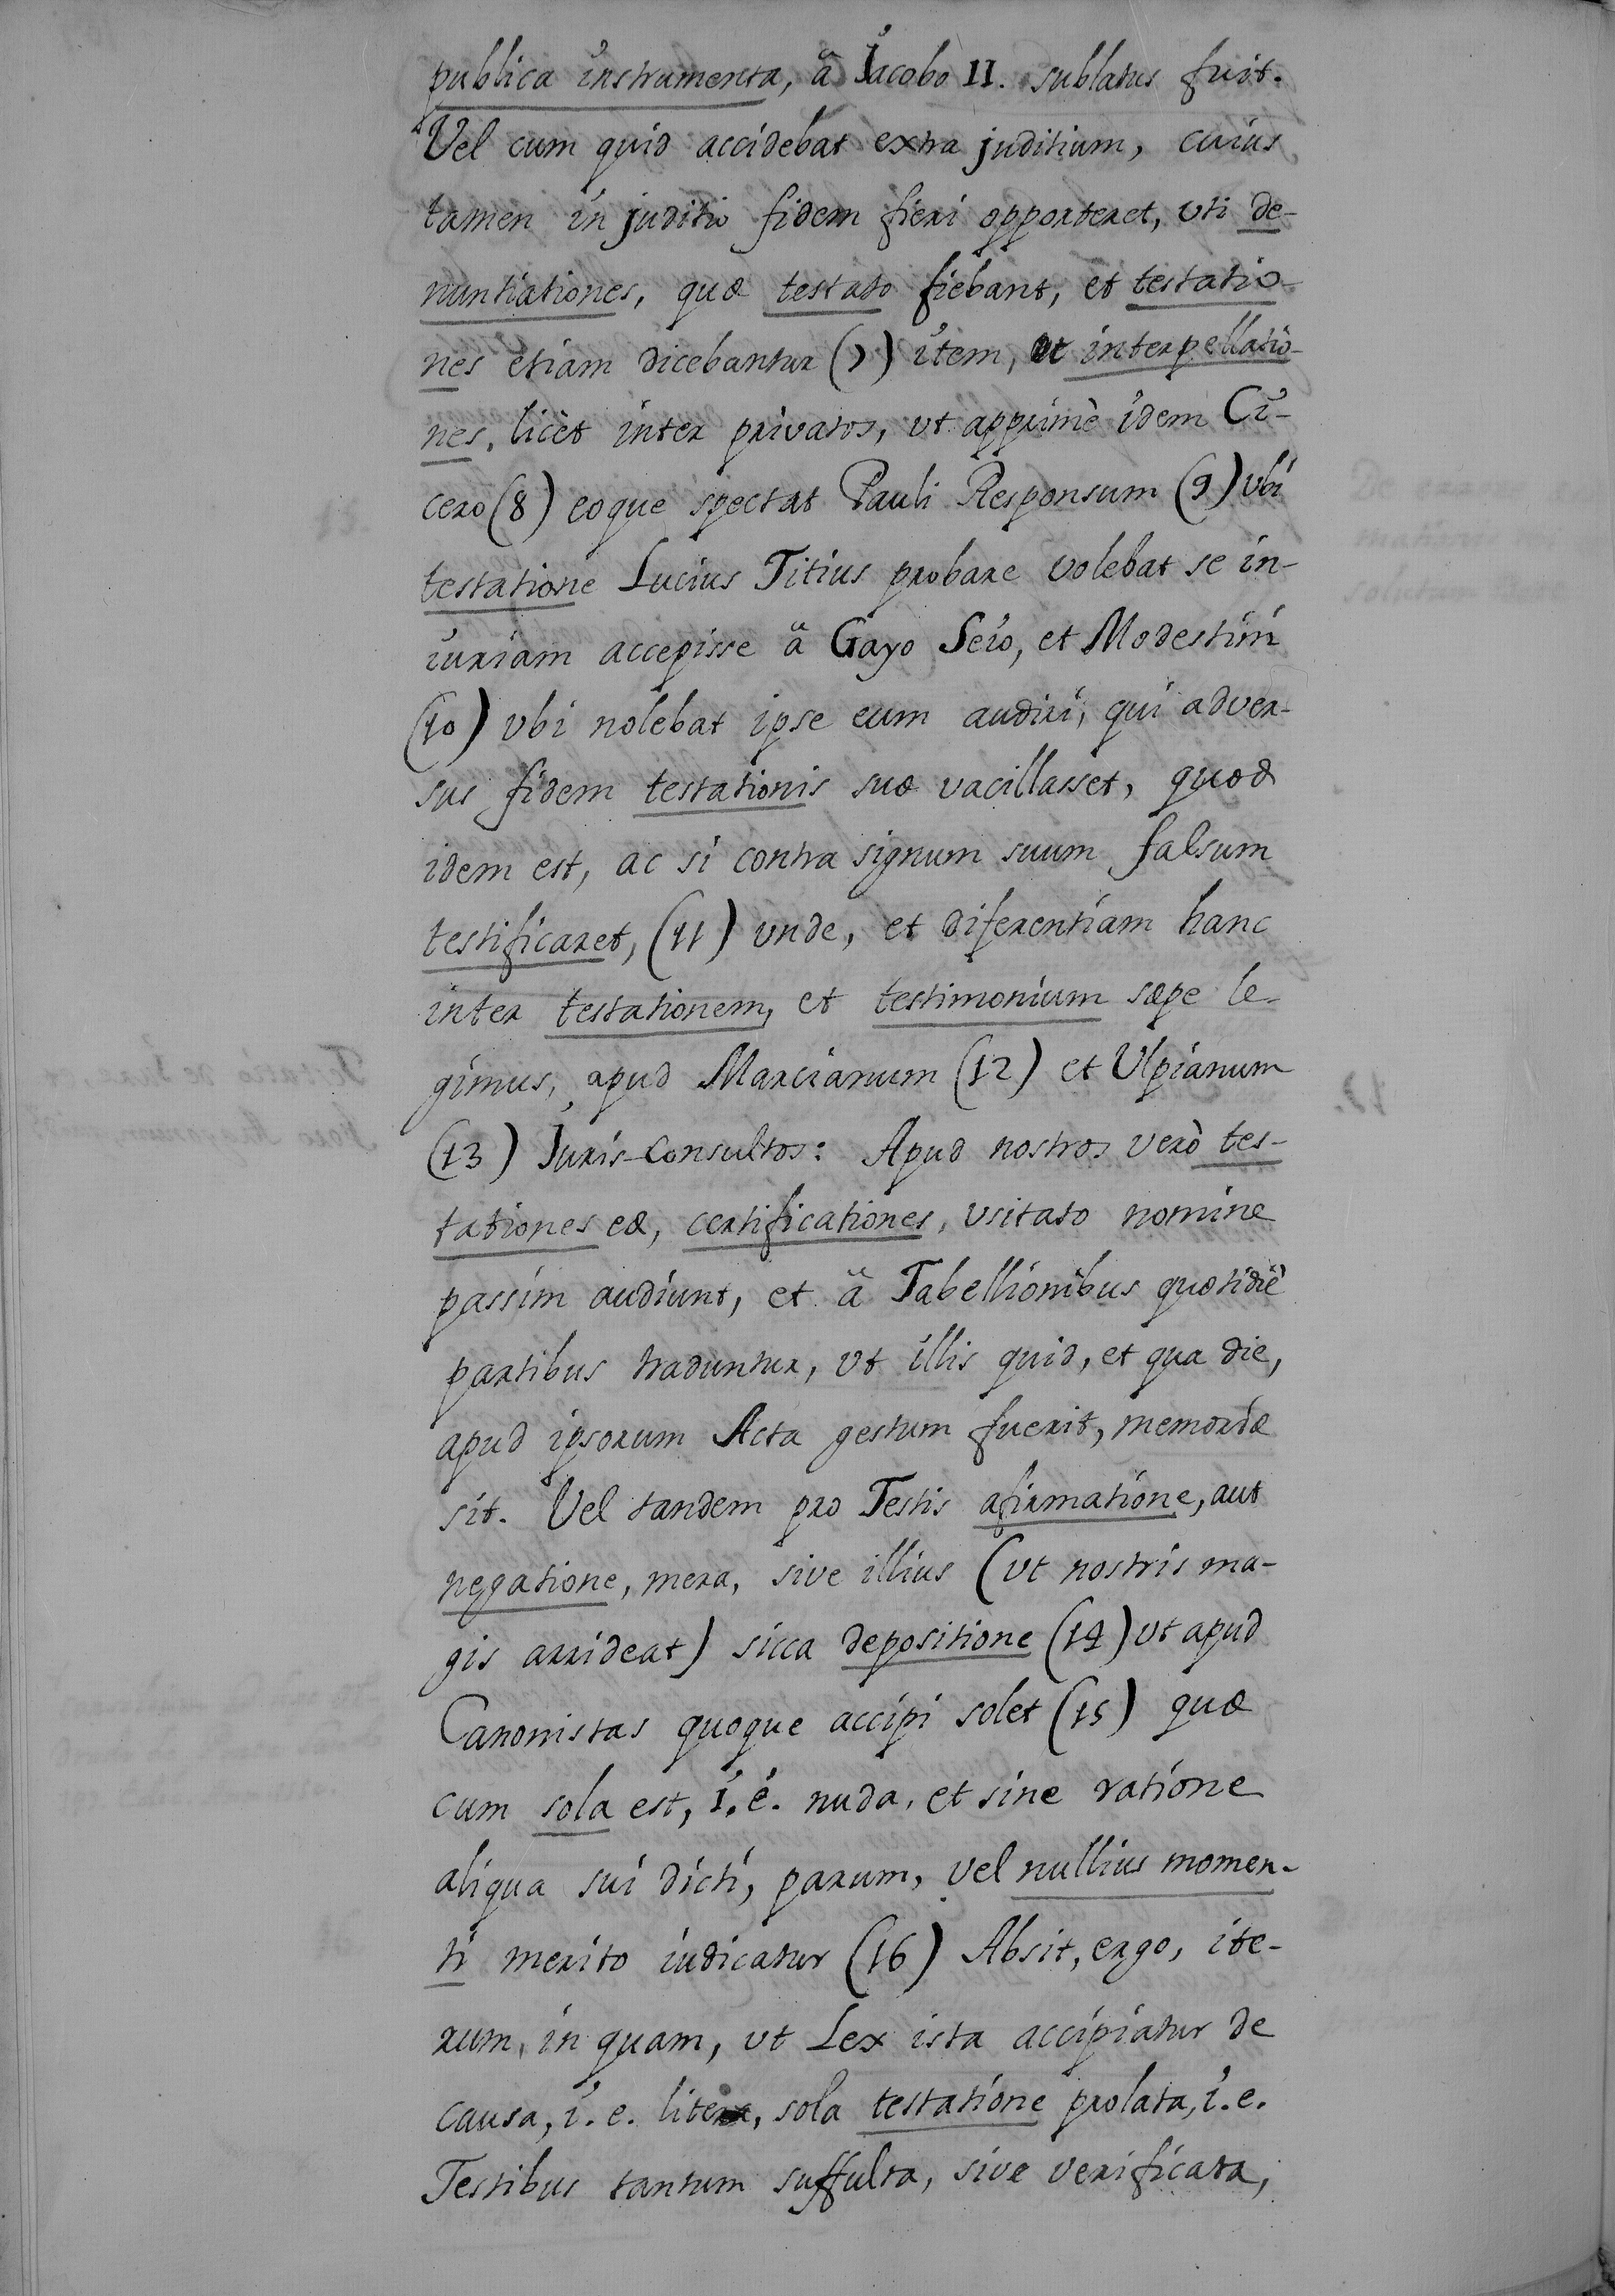 publica instrumenta, â Jacobo II. sublatus fuit.
Vel cum quid accidebat extra juditium, cuius
tamen in juditio fidem fieri opporteret, vti de-
nuntiationes, quæ testato fiebant, et testatio-
nes etiam dicebantur (7) item, et interpellatio-
nes, licèt inter privatos, vt apprimè idem Ci-
cero (8) eoque spectat Pauli Responsum (9) vbi
testatione Lucius Titius probare volebat se in-
iuriam accepisse â Gayo Seio, et Modestini
(10) vbi nolebat ipse eum audiri, qui adver-
sus fidem testationis suæ vacillasset, quod
idem est, ac si contra signum suum falsum
testificaret, (11) vnde, et diferentiam hanc
inter testationem, et testimonium sæpe le-
gimus, apud Marcianum (12) et Ulpianum
(13) Juris-Consultos: Apud nostros verò tes-
tationes eæ, certificationes, vsitato nomine
passim audiunt, et â Tabellionibus quotidiè
partibus traduntur, vt illis quid, et qua die,
apud ipsorum Acta gestum fuerit, memoriæ
sit. Vel tandem pro Testis afirmatione, aut
negatione, mera, sive illius (vt nostris ma-
gis arrideat) sicca depositione (14) vt apud
Canonistas quoque accipi solet (15) quæ
cum sola est, i. e. nuda, et sine ratione
aliqua sui dicti, parum, vel nullius momen-
ti merito iudicatur (16) Absit, ergo, ite-
rum, in quam, vt Lex ista accipiatur de
causa, i. e. litera, sola testatione prolata, i. e.
Testibus tantum suffulta, sive verificata,